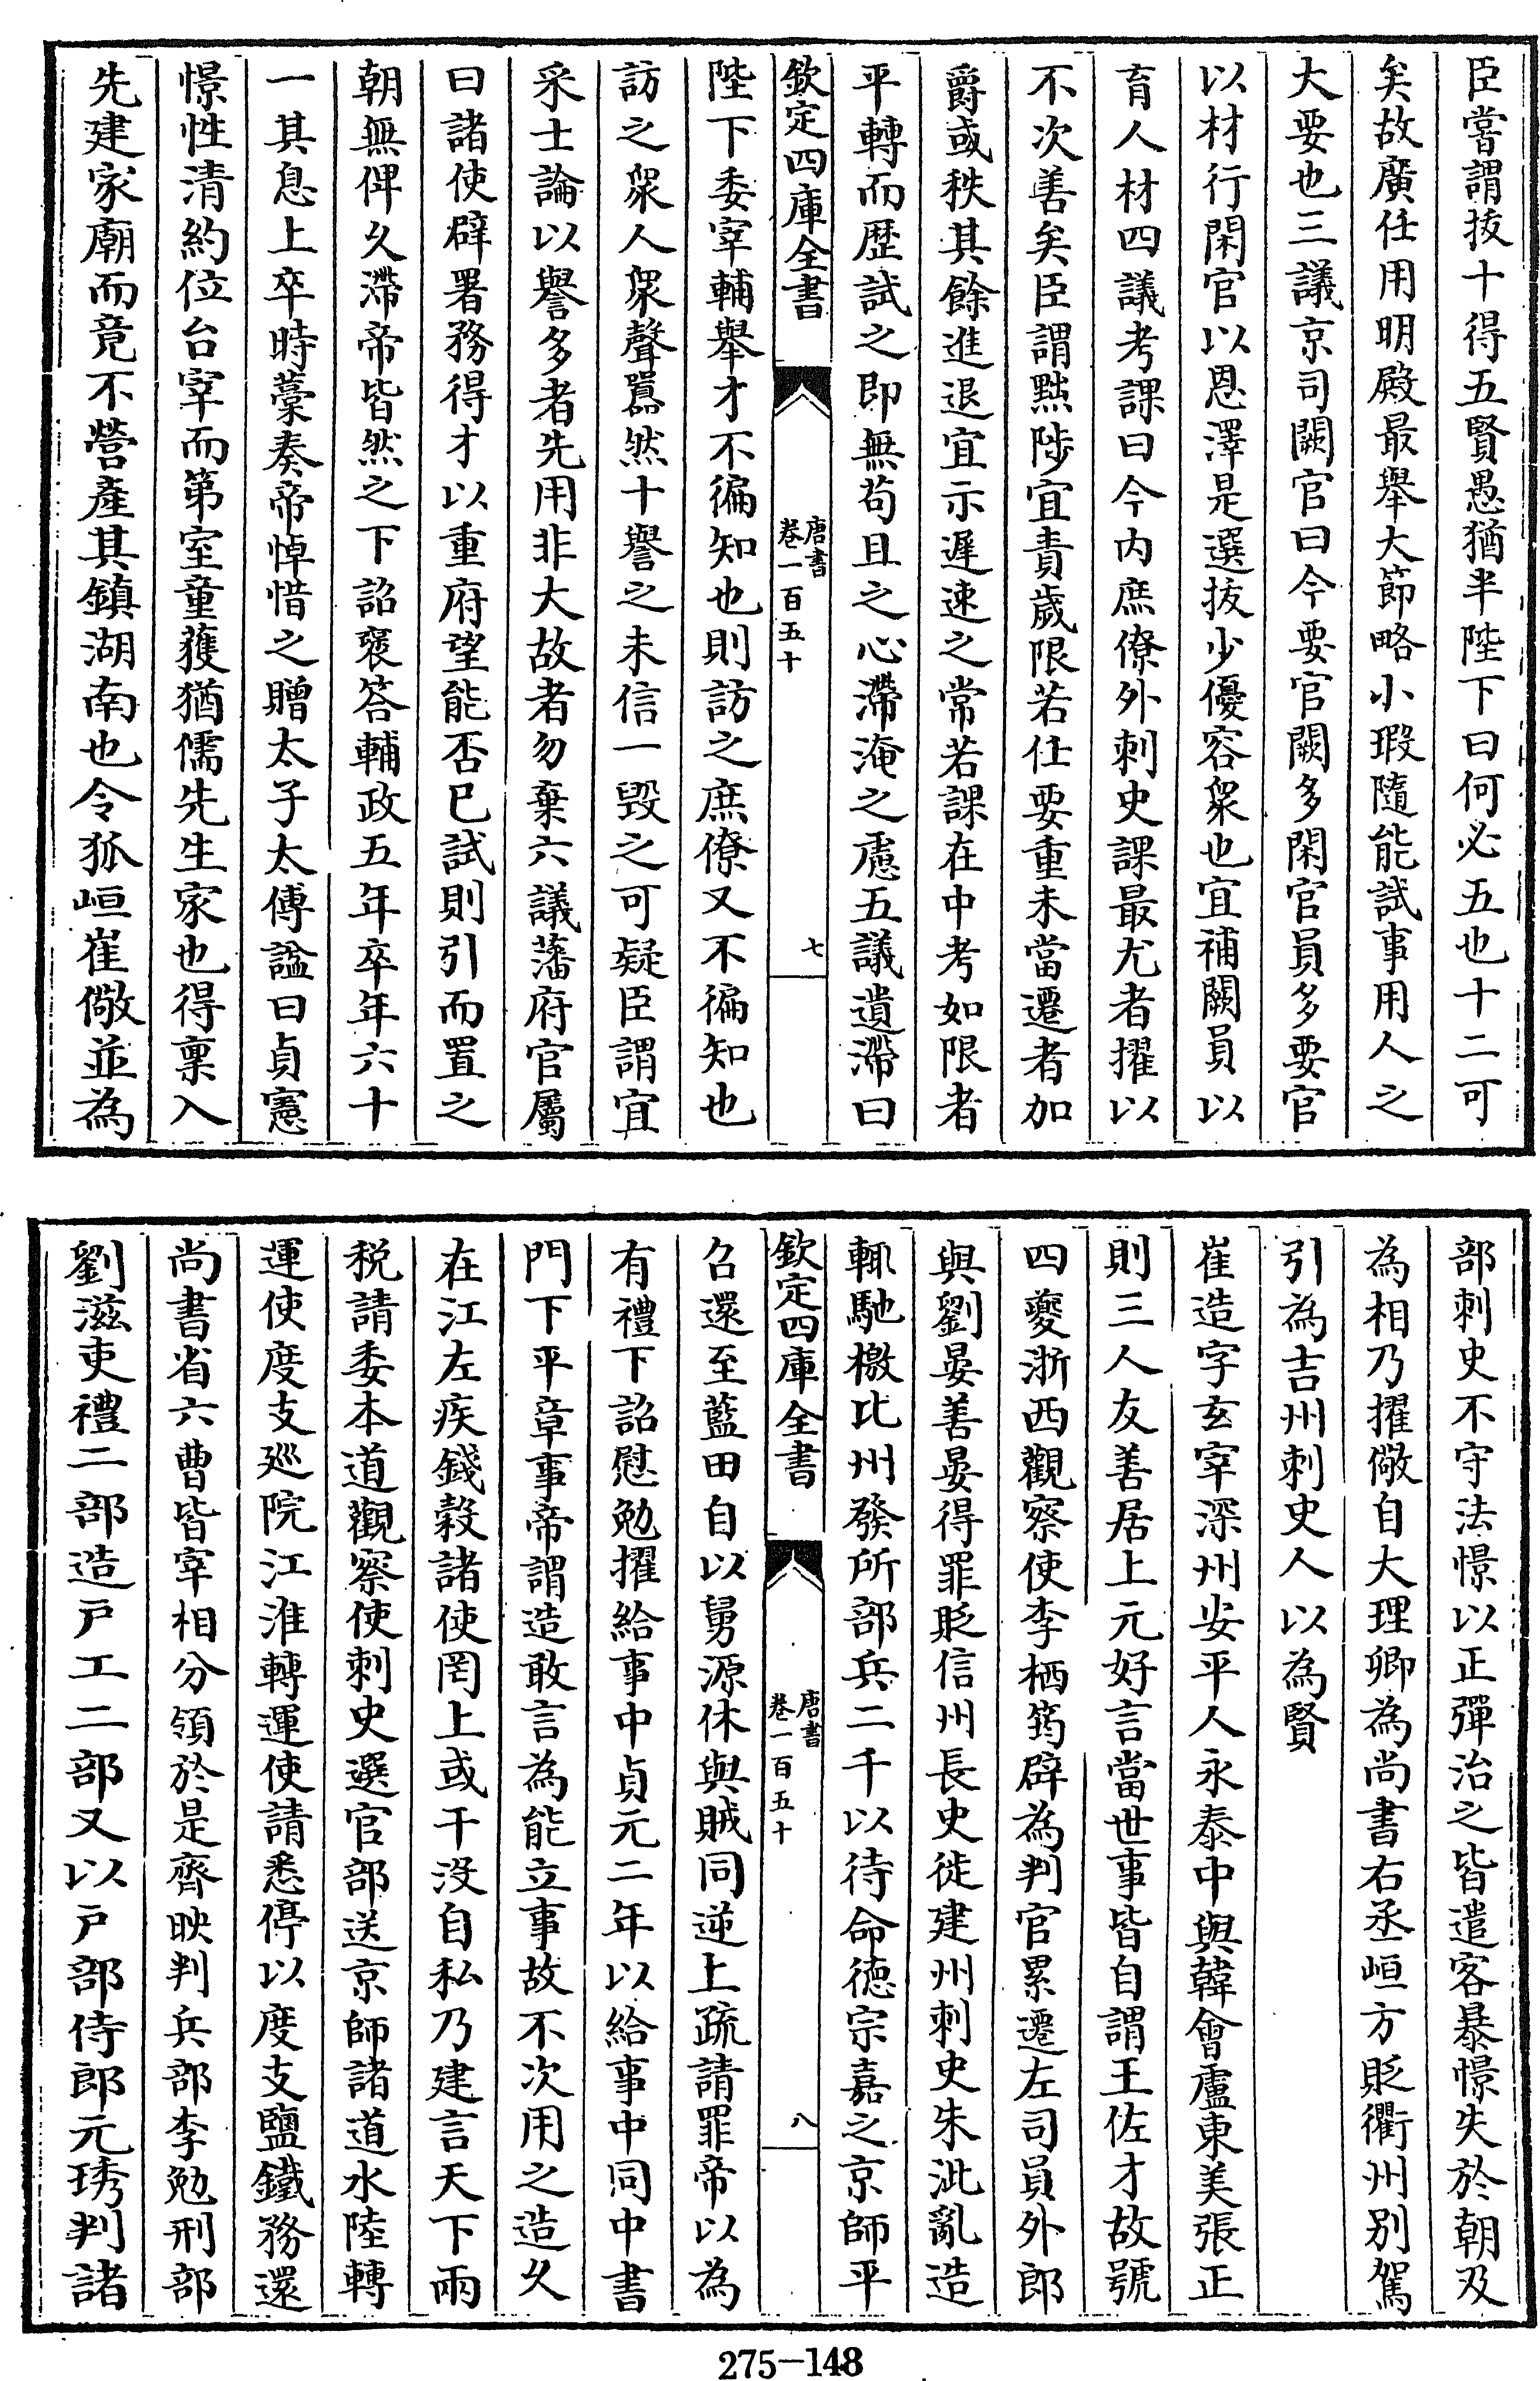 臣嘗謂拔十得五賢愚猶半陛下曰何必五也十二可
矣故廣任用明殿最舉大節略小瑕隨能試事用人之
大要也三議京司闕官曰今要官闕多閑官員多要官
以材行閑官以恩澤是選拔少優容衆也宜補闕員以
育人材四議考課曰今内庶僚外刺史課最尤者擢以
不次善矣臣謂黜陟宜責歲限若任要重未當遷者加
爵或秩其餘進退宜示遲速之常若課在中考如限者
平轉而歴試之即無苟且之心滯淹之慮五議遺滯曰
欽定四庫全書
唐書
卷一百五十
七
陛下委宰輔舉才不徧知也則訪之庶僚又不徧知也
訪之衆人衆聲囂然十譽之未信一毁之可疑臣謂宜
采士論以譽多者先用非大故者勿棄六議藩府官屬
曰諸使辟署務得才以重府望能否已試則引而置之
朝無俾久滯帝皆然之下詔褒答輔政五年卒年六十
一其息上卒時藁奏帝悼惜之贈太子太傅諡曰貞憲
憬性清約位台宰而第室童蒦猶儒先生家也得稟入
先建家廟而竟不營產其鎮湖南也令狐峘崔儆並為
部刺史不守法憬以正彈治之皆遣客暴憬失於朝及
為相乃擢儆自大理卿為尚書右丞峘方貶衢州别駕
引為吉州刺史人以為賢
崔造字玄宰深州安平人永泰中與韓會盧東美張正
則三人友善居上元好言當世事皆自謂王佐才故號
四夔浙西觀察使李栖筠辟為判官累遷左司員外郎
與劉晏善晏得罪貶信州長史徙建州刺史朱泚亂造
輒馳檄比州發所部兵二千以待命德宗嘉之京師平
欽定四庫全書
唐書
卷一百五十
八
召還至藍田自以舅源休與賊同逆上疏請罪帝以為
有禮下詔慰勉擢給事中貞元二年以給事中同中書
門下平章事帝謂造敢言為能立事故不次用之造久
在江左疾錢穀諸使罔上或干没自私乃建言天下兩
税請委本道觀察使刺史選官部送京師諸道水陸轉
運使度支廵院江淮轉運使請悉停以度支鹽鐵務還
尚書省六曹皆宰相分領於是齊映判兵部李勉刑部
劉滋吏禮二部造戸工二部又以戸部侍郎元琇判諸
275-148